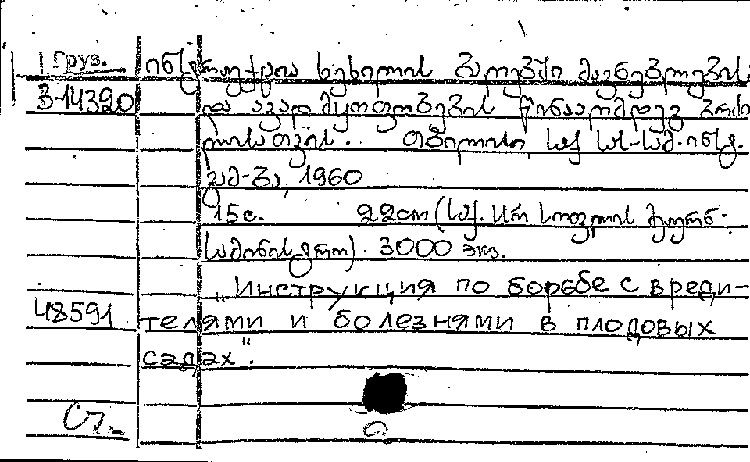 Груз.
3-14320
ინსტრუქცია ხეხილის ბაღებში მავნებლების
და ავადმყოფობების წინააღმდეგ ბრძო
ლისათვის. თბილისი, საქ. სას.-სამ. ინსტ.
გამ-ბა, 1960
15с. 22см (საქ. სსრ სოფლის მეურნ.
სამინისტრო). 3000 экз.
„Инструкция по борьбе с вреди-
48591 телями и болезнями в плодовых
садах".